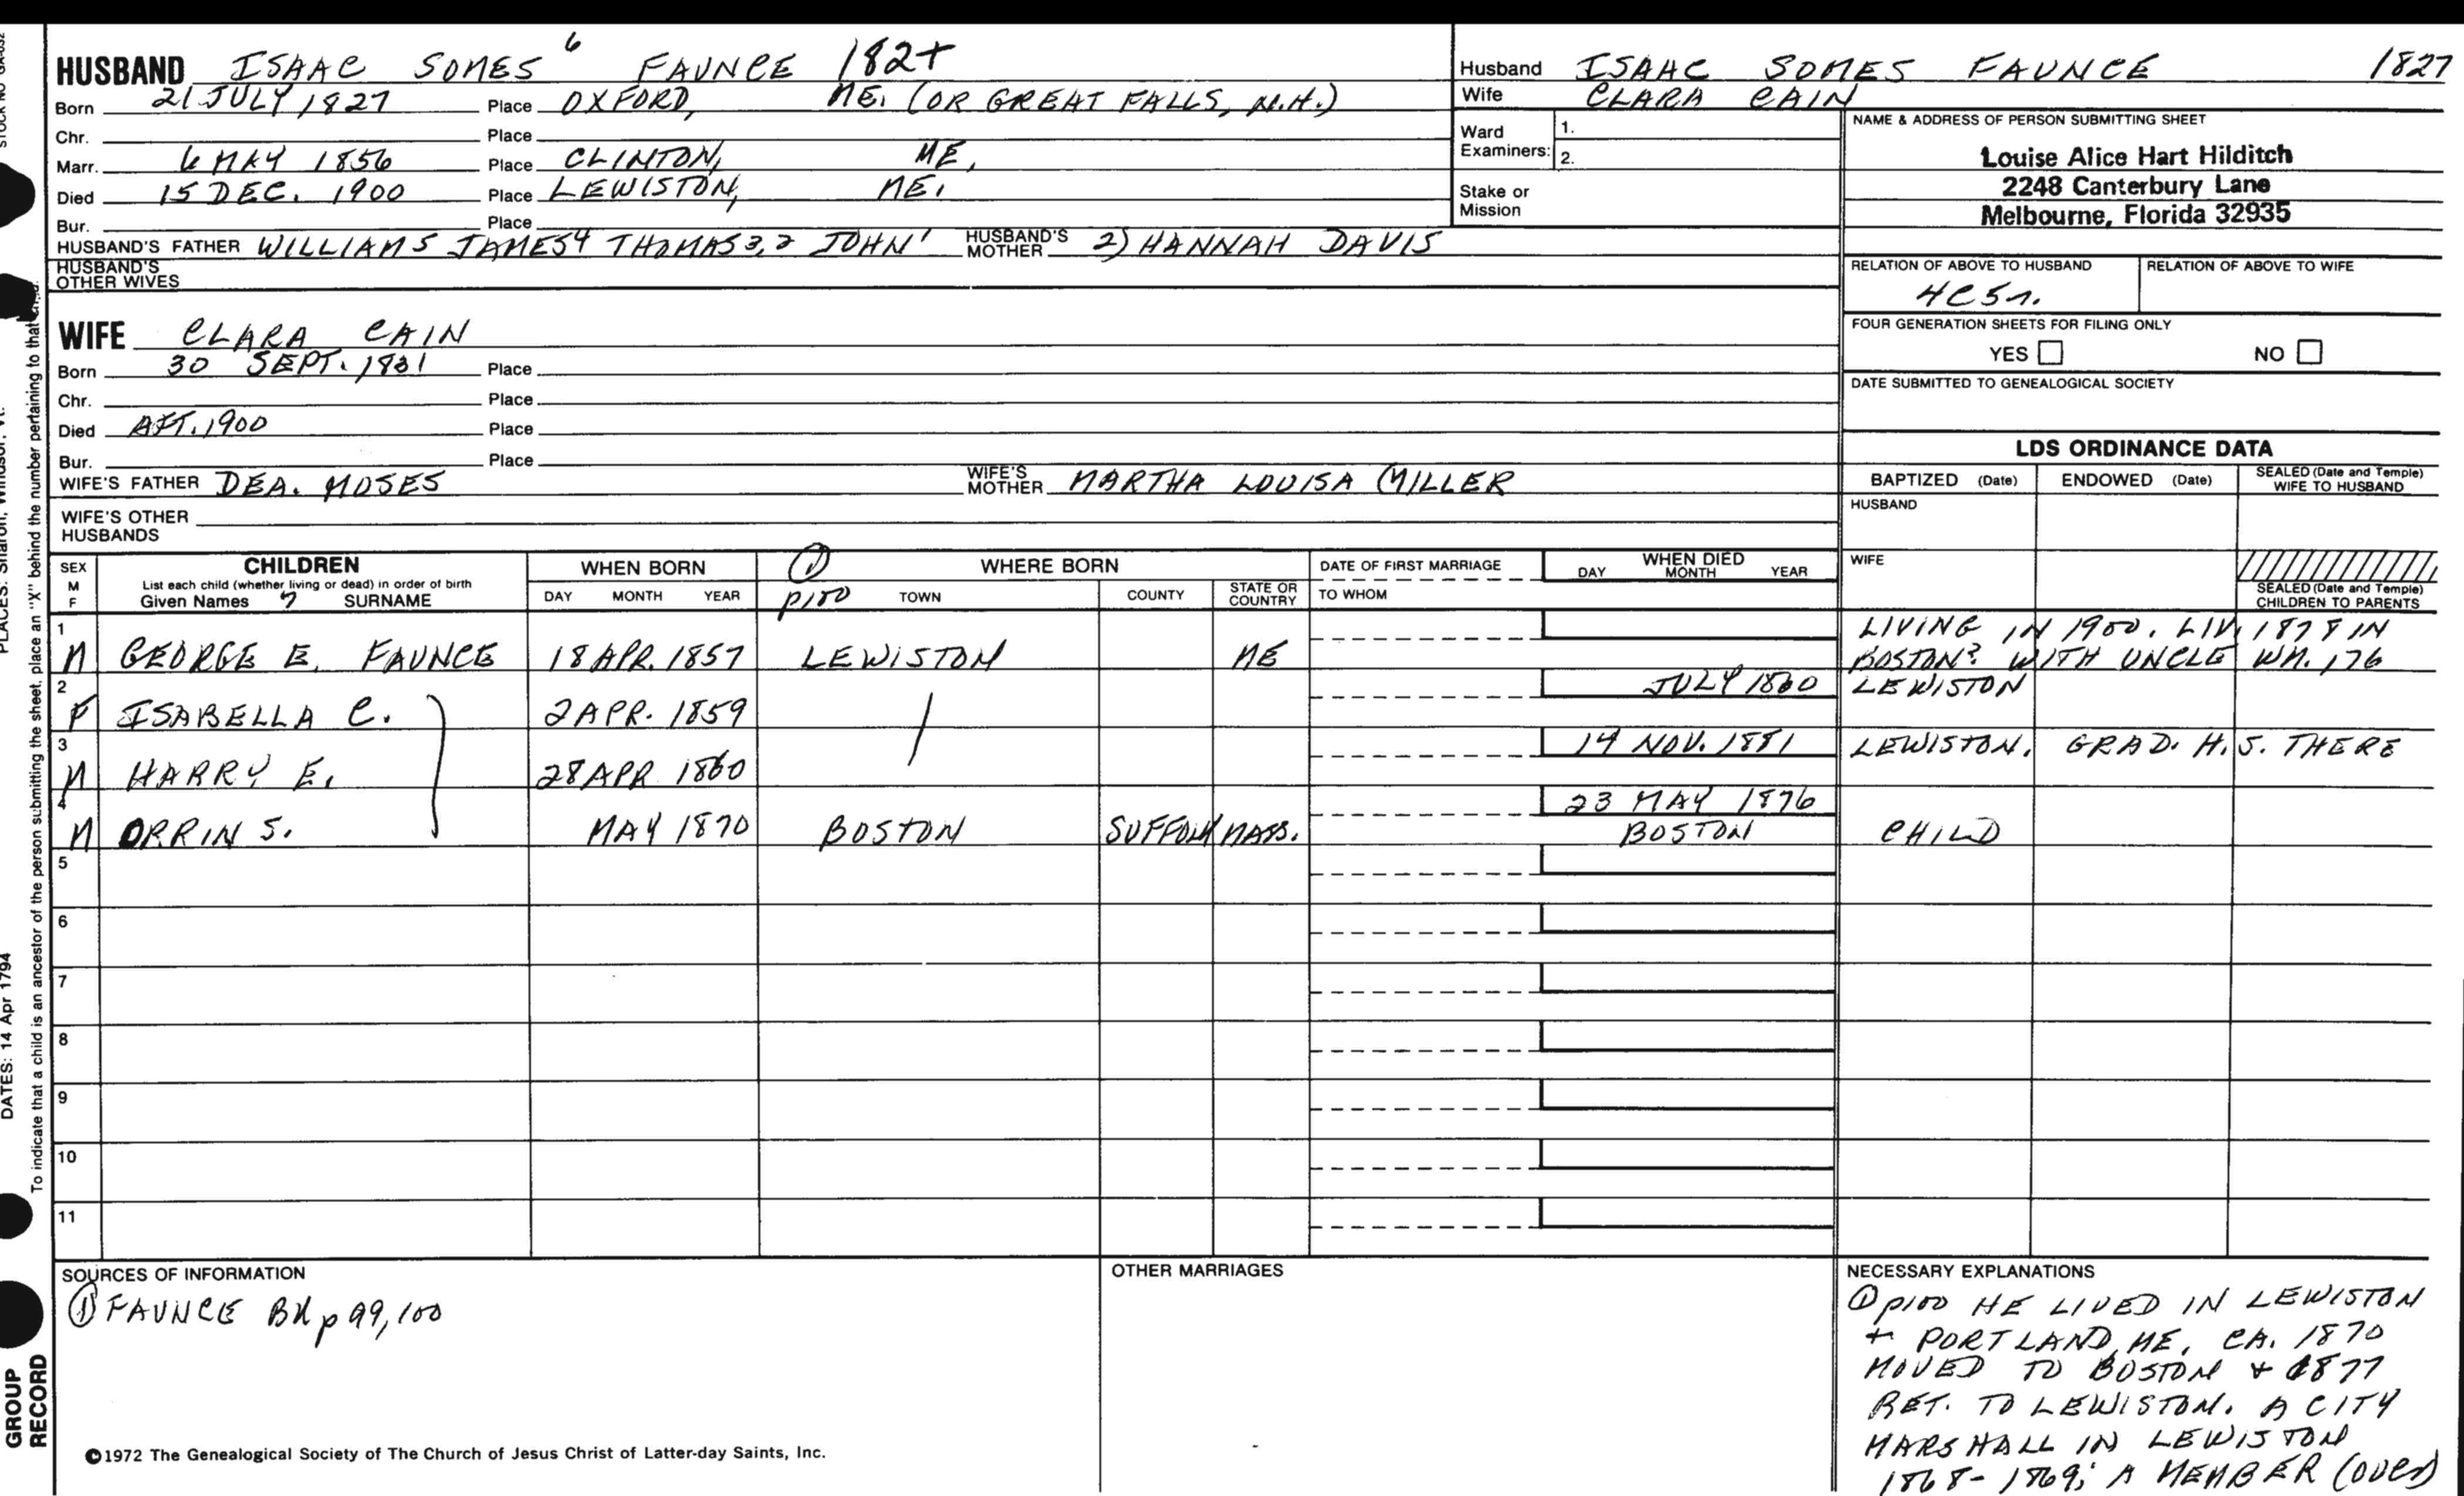 HUSBAND ISAAC SOMES 6 FAUNCE 182+
Born 21 JULY 1827 Place OXFORD, ME. (OR GREAT FALLS, N.H.)
Chr. Place
Marr. 6 MAY 1856 Place CLINTON, ME,
Died 15 DEC. 1900 Place LEWISTON, ME.
Bur. Place
HUSBAND'S FATHER WILLIAM5 JAMES4 THOMAS3,2 JOHN1 HUSBAND'S MOTHER 2) HANNAH DAVIS
HUSBAND'S OTHER WIVES
WIFE CLARA CAIN
Born 30 SEPT. 1831 Place
Chr. Place
Died AFT. 1900 Place
Bur. Place
WIFE'S FATHER DEA. MOSES WIFE'S MOTHER MARTHA LOUISA MILLER
WIFE'S OTHER HUSBANDS
Husband ISAAC SOMES FAUNCE 1827
Wife CLARA CAIN
Ward Examiners: 1.
2.
Stake or Mission
NAME & ADDRESS OF PERSON SUBMITTING SHEET
Louise Alice Hart Hilditch
2248 Canterbury Lane
Melbourne, Florida 32935
RELATION OF ABOVE TO HUSBAND RELATION OF ABOVE TO WIFE
4C5r.
FOUR GENERATION SHEETS FOR FILING ONLY
YES NO
DATE SUBMITTED TO GENEALOGICAL SOCIETY
LDS ORDINANCE DATA
BAPTIZED (Date) ENDOWED (Date) SEALED (Date and Temple) WIFE TO HUSBAND
HUSBAND
WIFE
SEALED (Date and Temple) CHILDREN TO PARENTS
SEX M F CHILDREN WHEN BORN ① WHERE BORN DATE OF FIRST MARRIAGE WHEN DIED
List each child (whether living or dead) in order of birth
Given Names 7 SURNAME DAY MONTH YEAR p100 TOWN COUNTY STATE OR COUNTRY TO WHOM DAY MONTH YEAR
1 LIVING IN 1900. LIV. 1878 IN
M GEORGE E. FAUNCE 18 APR. 1857 LEWISTON ME BOSTON? WITH UNCLE WM. 176
2 JULY 1860 LEWISTON
F ISABELLA C. 2 APR. 1859
3 14 NOV. 1881 LEWISTON. GRAD. H.S. THERE
M HARRY E. 28 APR 1860
4 23 MAY 1876
M ORRIN S. MAY 1870 BOSTON SUFFOLK MASS. BOSTON CHILD
5
6
7
8
9
10
11
SOURCES OF INFORMATION
① FAUNCE BK p 99,100
OTHER MARRIAGES
NECESSARY EXPLANATIONS
① p100 HE LIVED IN LEWISTON
+ PORTLAND, ME. CA. 1870
MOVED TO BOSTON + 1877
RET. TO LEWISTON. A CITY
MARSHALL IN LEWISTON
1868-1869; A MEMBER (over)
©1972 The Genealogical Society of The Church of Jesus Christ of Latter-day Saints, Inc.
To indicate that a child is an ancestor of the person submitting the sheet, place an "X" behind the number pertaining to that
PLACES: Sharon, Windsor, Vt.
DATES: 14 Apr 1794
GROUP
RECORD